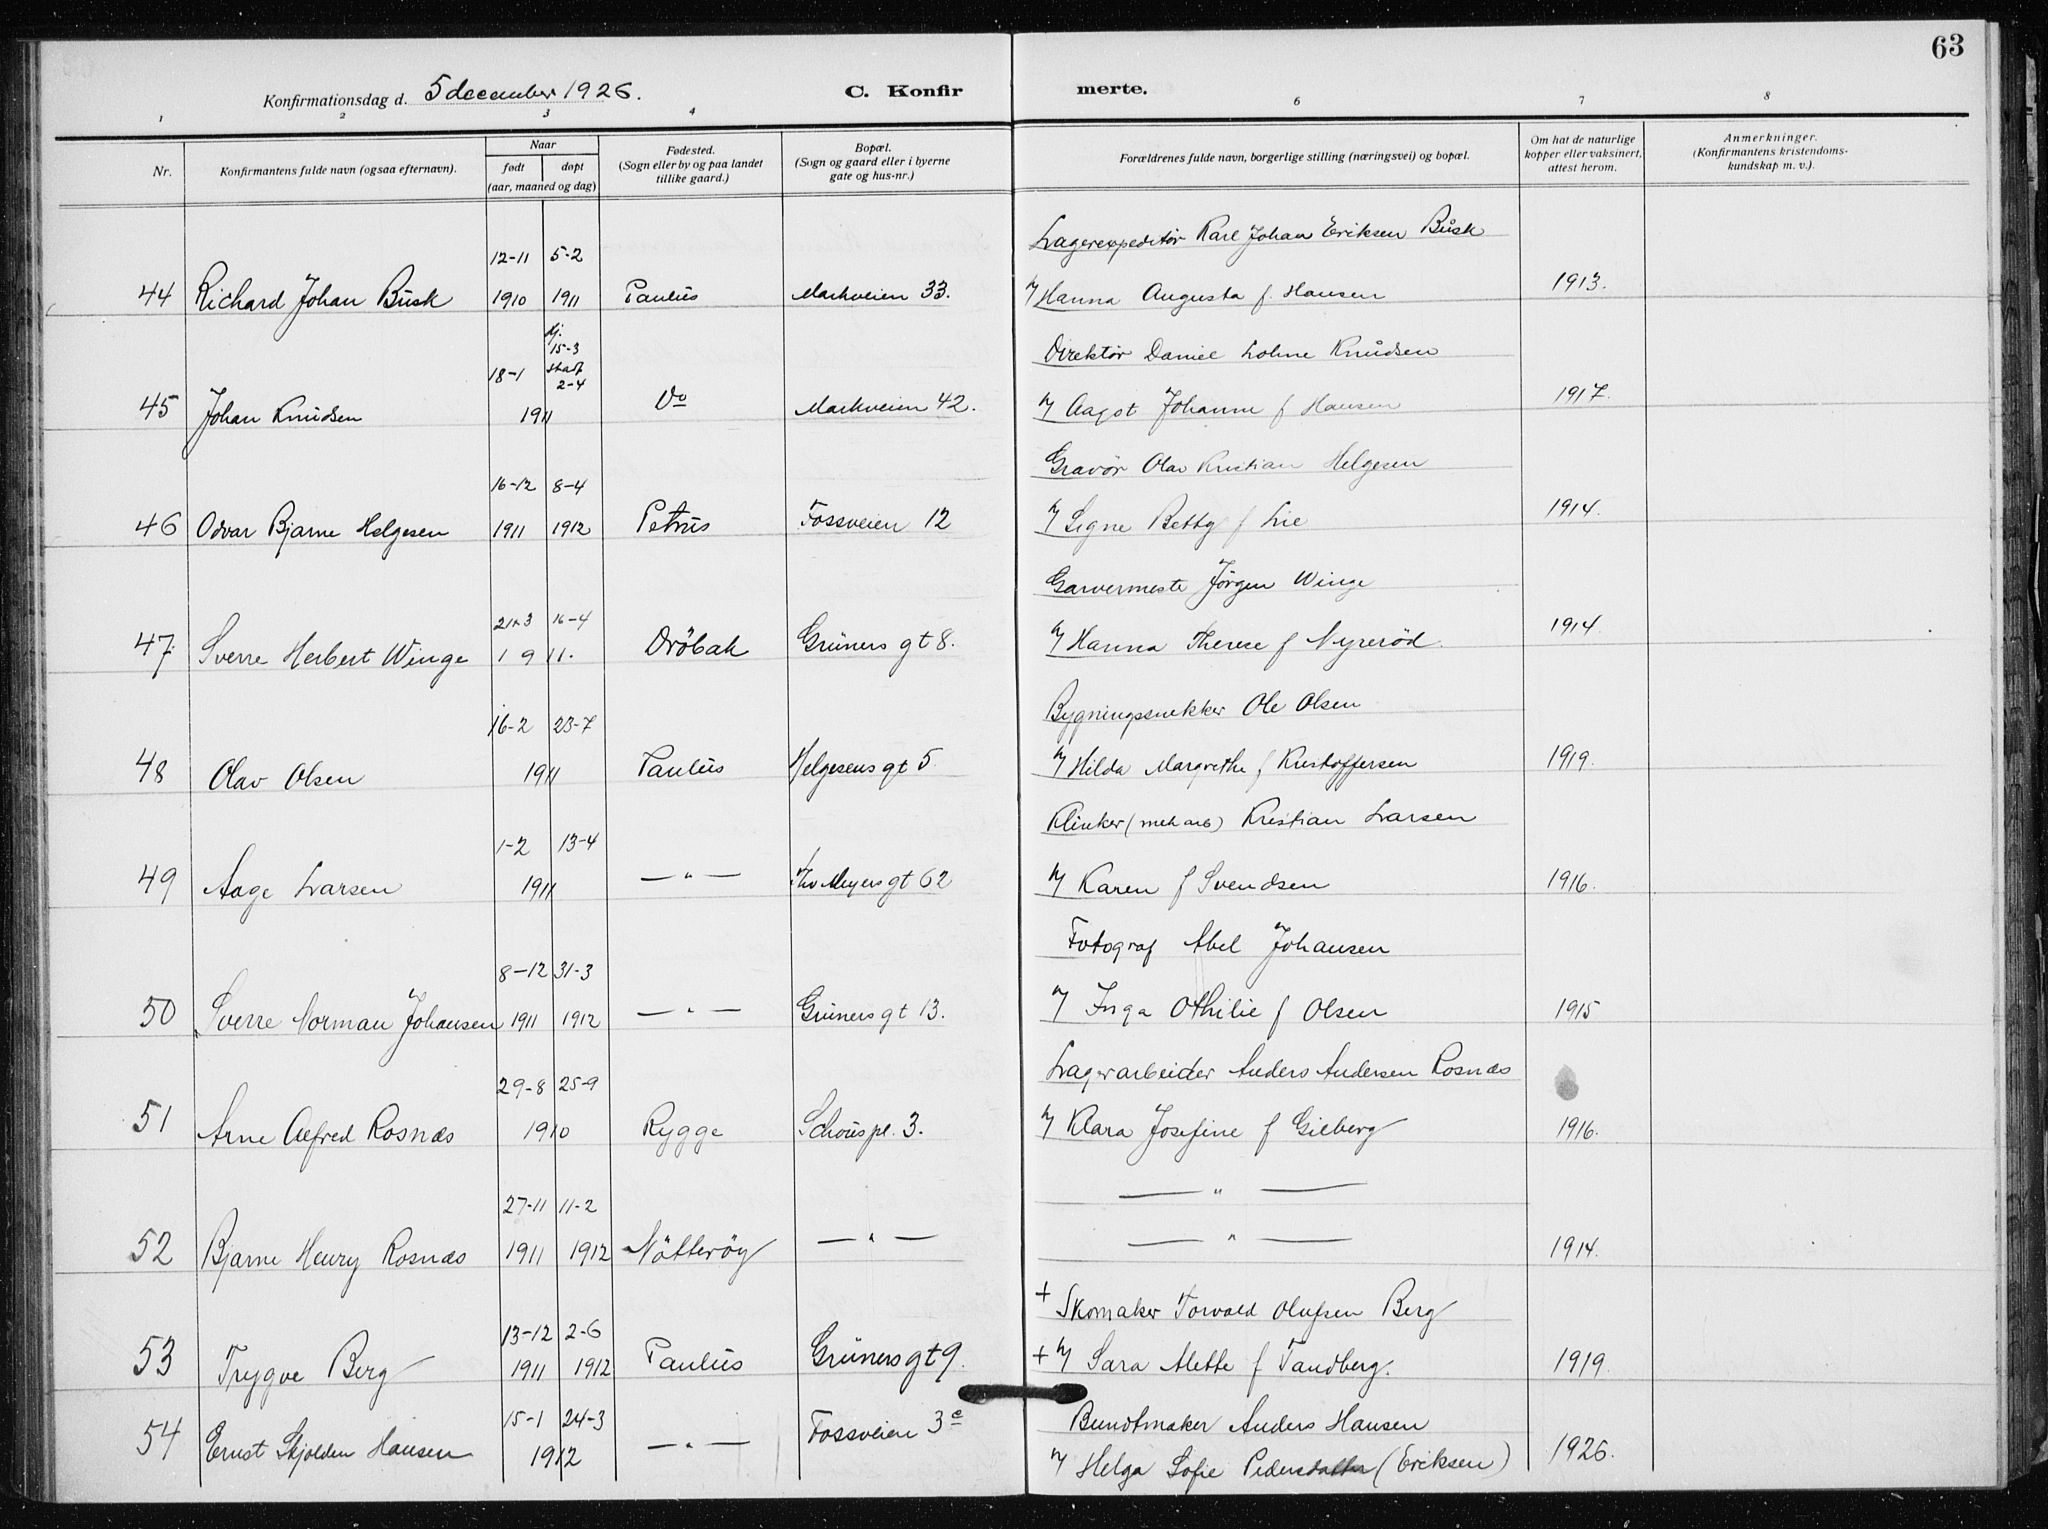 63
Konfirmationsdag d. 5 december 1926.
C. Konfir merte.
1 2 3 4 6 7 8
Nr.
Konfirmantens fulde navn (ogsaa efternavn).
Naar
født døpt
(aar, maaned og dag)
Fødested.
(Sogn eller by og paa landet
tillike gaard.)
Bopæl.
(Sogn og gaard eller i byerne
gate og hus-nr.)
Forældrenes fulde navn, borgerlige stilling (næringsvei) og bopæl.
Om hat de naturlige
kopper eller vaksinert,
attest herom.
Anmerkninger.
(Konfirmantens kristendoms-
kundskap m. v.).
12-11 5-2 Lagerexpeditör Karl Johan Eriksen Busk
44 Richard Johan Busk 1910 1911 Paulus Markveien 33. Hanna Augusta f. Hansen 1913.
hj. 15-3
18-1 stadf 2-4 Direktör Daniel Lohne Knudsen
45 Johan Knudsen 1911 Do Markveien 42. Aagot Johanne f Hansen 1917.
16-12 8-4 Gravör Olav Kristian Helgesen
46 Odvar Bjarne Helgesen 1911 1912 Petrus Fossveien 12 Signe Betty f Lie 1914.
21-3 16-4 Garvermeste Jörgen Winge
47. Sverre Herbert Winge 1911. Dröbak Grüners gt 8. Hanna Therese f Nyreröd. 1914.
16-2 23-7 Bygningssnekker Ole Olsen
48 Olav Olsen 1911 Paulus Helgesens gt 5 Hilda Margrethe f Kristoffersen 1919.
1-2 13-4 Klinker (mek arb) Kristian Larsen
49 Aage Larsen 1911 — " — Thv Meyers gt 62 Karen f Svendsen 1916.
8-12 31-3 Fotograf Abel Johansen
50 Sverre Norman Johansen 1911 1912 — " — Grüners gt 13. Inga Othilie f Olsen 1915
29-8 25-9 Lagerarbeider Anders Andersen Rosnæs
51 Arne Alfred Rosnæs 1910 Rygge Schous pl. 3. Klara Josefine f Gieberg 1916.
27-11 11-2 — " —
52 Bjarne Henry Rosnæs 1911 1912 Nötteröy — " — — " — 1914.
13-12 2-6 + Skomaker Torvald Olufsen Berg
53 Trygve Berg 1911 1912 Paulus Grüners gt 9. + Sara Alette f Tandberg. 1919.
15-1 24-3 Bundtmaker Anders Hansen
54 Ernst Skjolden Hansen 1912 — " — Fossveien 3c Helga Sofie Pedersdatter (Eriksen) 1926.